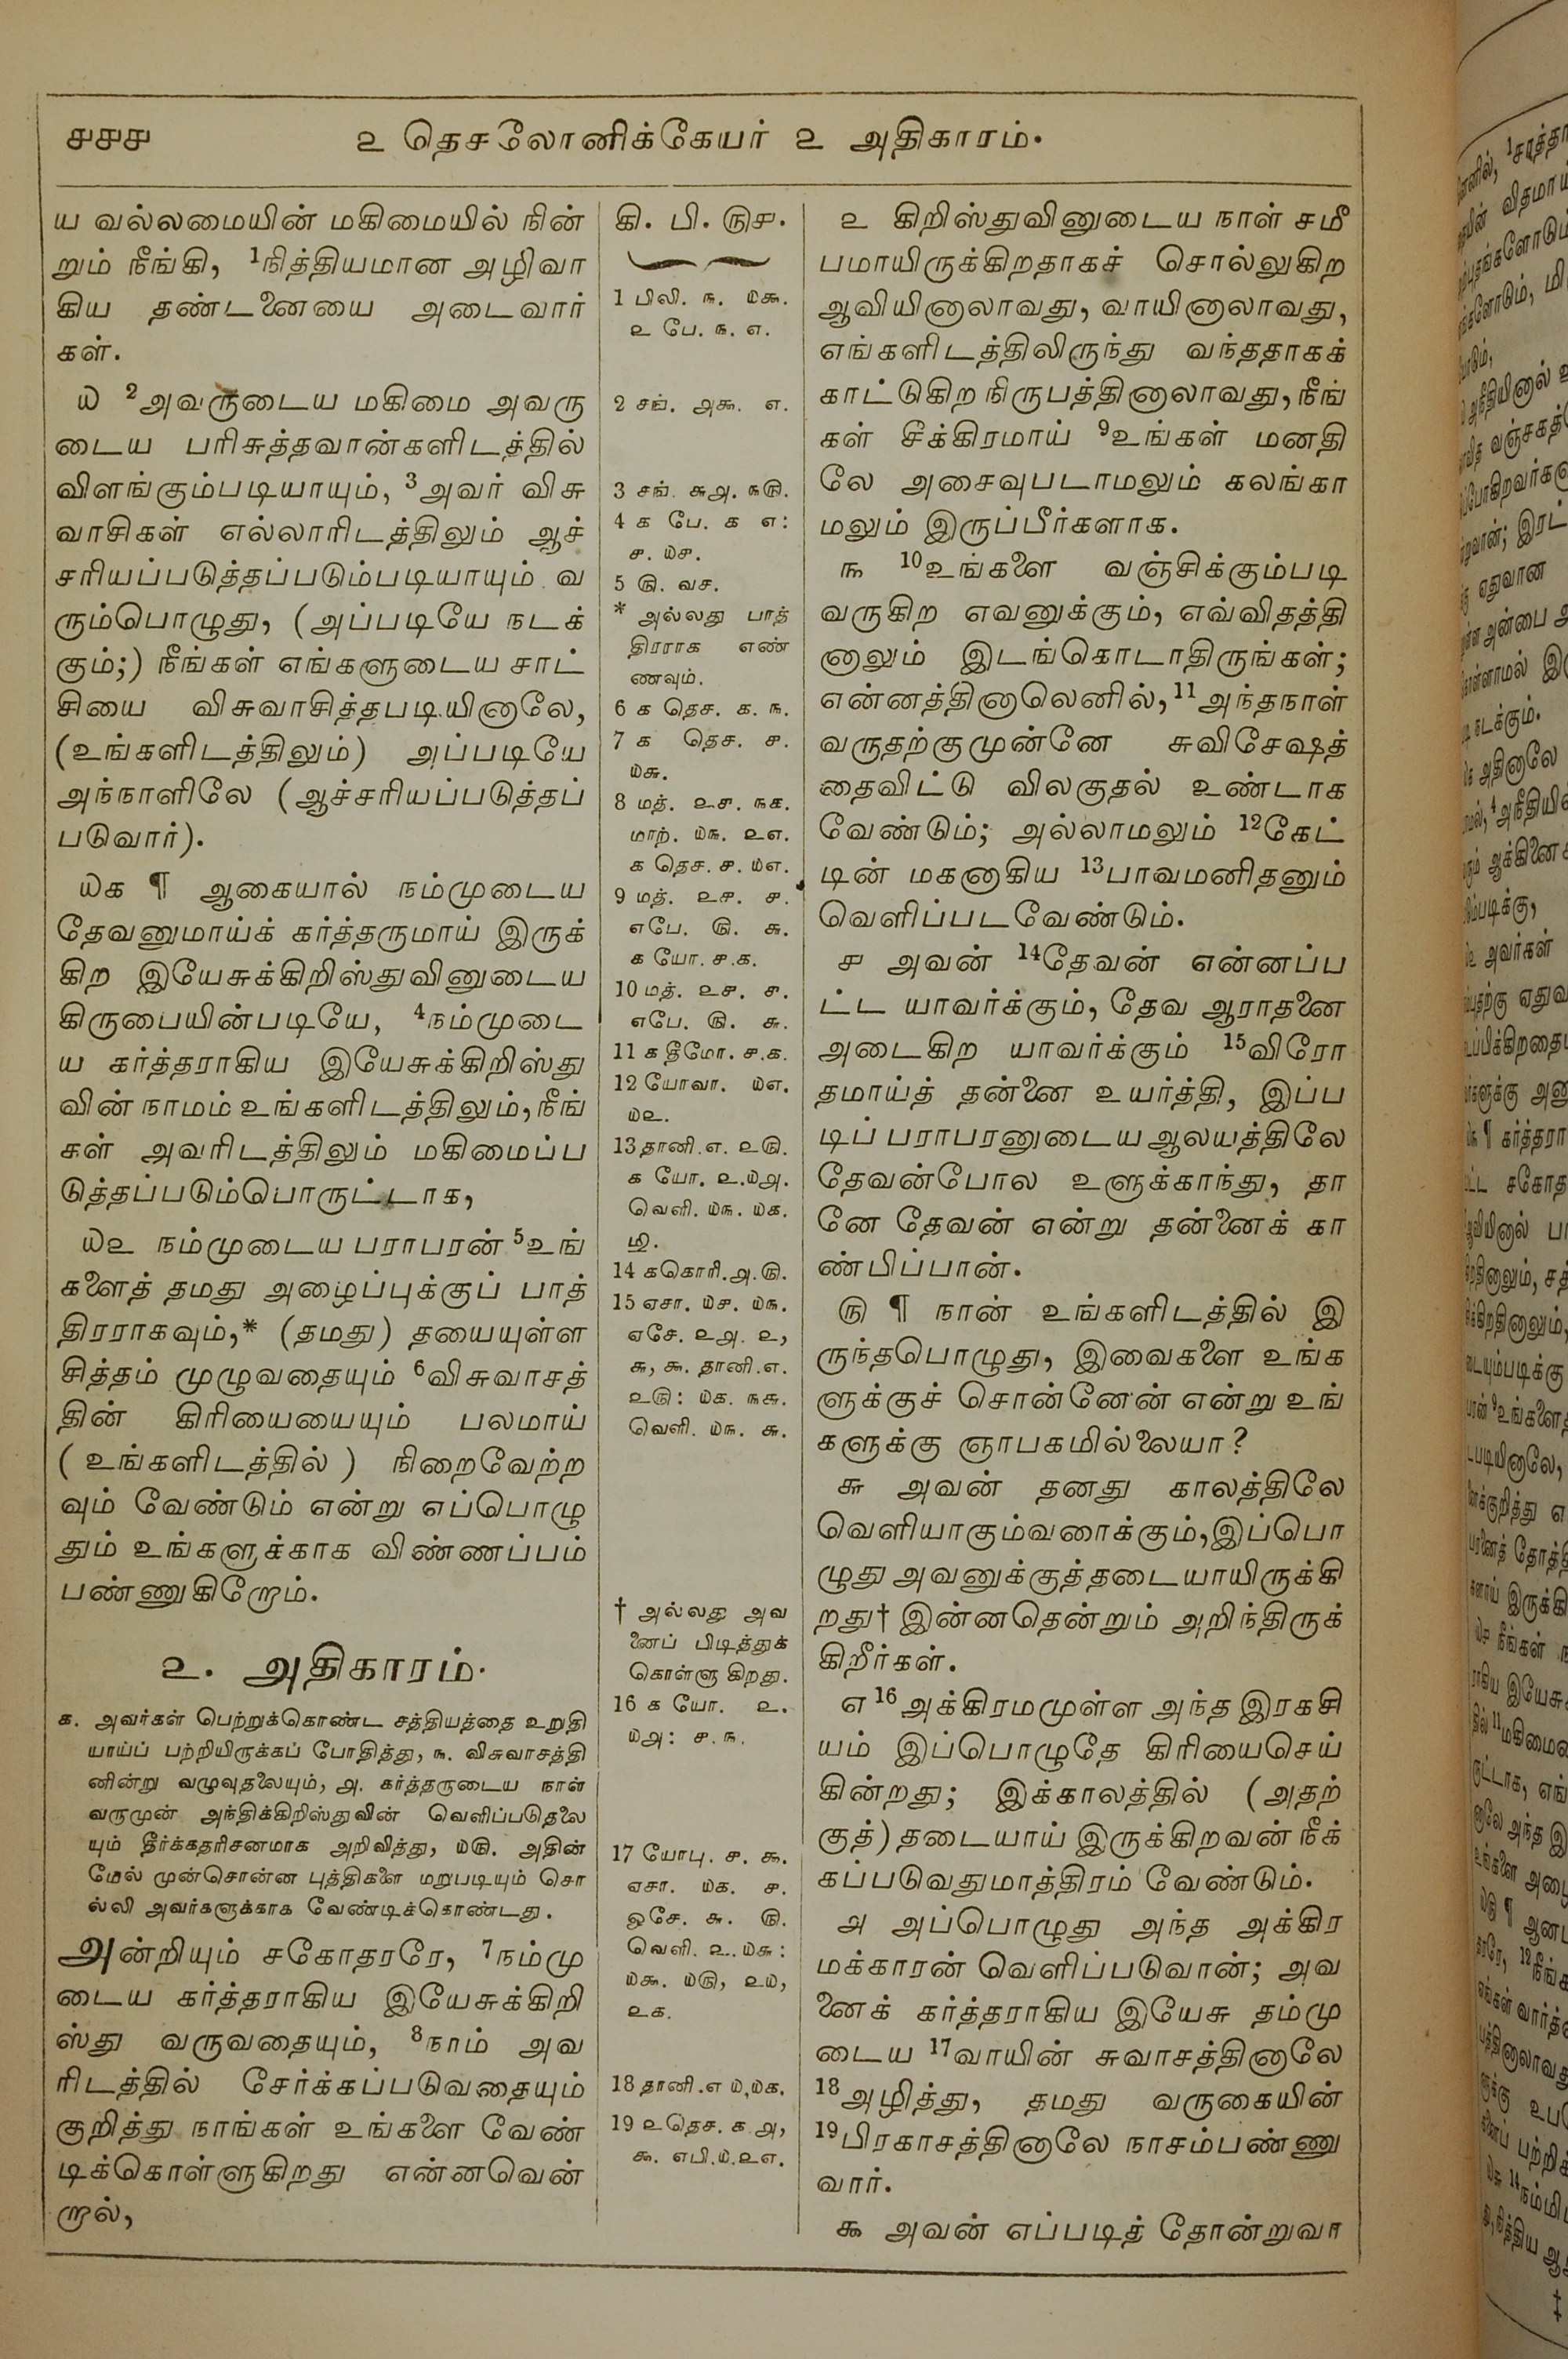 ௪௪௪ ௨ தெசலோனிக்கேயர் ௨ அதிகாரம்.
ய வல்லமையின் மகிமையில் நின்
றும் நீங்கி, 1நித்தியமான அழிவா
கிய தண்டனையை அடைவார்
கள்.
௰ 2அவருடைய மகிமை அவரு
டைய பரிசுத்தவான்களிடத்தில்
விளங்கும்படியாயும், 3அவர் விசு
வாசிகள் எல்லாரிடத்திலும் ஆச்
சரியப்படுத்தப்படும்படியாயும் வ
ரும்பொழுது, (அப்படியே நடக்
கும்;) நீங்கள் எங்களுடைய சாட்
சியை விசுவாசித்தபடியினாலே,
(உங்களிடத்திலும்) அப்படியே
அந்நாளிலே (ஆச்சரியப்படுத்தப்
படுவார்).
௰௧ ¶ ஆகையால் நம்முடைய
தேவனுமாய்க் கர்த்தருமாய் இருக்
கிற இயேசுக்கிறிஸ்துவினுடைய
கிருபையின்படியே, 4நம்முடை
ய கர்த்தராகிய இயேசுக்கிறிஸ்து
வின் நாமம் உங்களிடத்திலும், நீங்
கள் அவரிடத்திலும் மகிமைப்ப
டுத்தப்படும்பொருட்டாக,
௰௨ நம்முடைய பராபரன் 5உங்
களைத் தமது அழைப்புக்குப் பாத்
திரராகவும்,* (தமது) தயையுள்ள
சித்தம் முழுவதையும் 6விசுவாசத்
தின் கிரியையையும் பலமாய்
(உங்களிடத்தில்) நிறைவேற்ற
வும் வேண்டும் என்று எப்பொழு
தும் உங்களுக்காக விண்ணப்பம்
பண்ணுகிறோம்.
௨. அதிகாரம்.
௧. அவர்கள் பெற்றுக்கொண்ட சத்தியத்தை உறுதி
யாய்ப் பற்றியிருக்கப் போதித்து, ௩. விசுவாசத்தி
னின்று வழுவுதலையும், ௮. கர்த்தருடைய நாள்
வருமுன் அந்திக்கிறிஸ்துவின் வெளிப்படுதலை
யும் தீர்க்கதரிசனமாக அறிவித்து, ௰௫. அதின்
மேல் முன்சொன்ன புத்திகளை மறுபடியும் சொ
ல்லி அவர்களுக்காக வேண்டிக்கொண்டது.
அன்றியும் சகோதரரே, 7நம்மு
டைய கர்த்தராகிய இயேசுக்கிறி
ஸ்து வருவதையும், 8நாம் அவ
ரிடத்தில் சேர்க்கப்படுவதையும்
குறித்து நாங்கள் உங்களை வேண்
டிக்கொள்ளுகிறது என்னவென்
றால்,
கி. பி. ௫௪.
1 பிலி. ௩. ௰௯.
௨ பே. ௩. ௭.
2 சங். ௮௯. ௭.
3 சங். ௬௮. ௩௫.
4 ௧ பே. ௧ ௭:
௪. ௰௪.
5 ௫. வச.
* அல்லது பாத்
திரராக எண்
ணவும்.
6 ௧ தெச. ௧. ௩.
7 ௧ தெச. ௪.
௰௬.
8 மத். ௨௪. ௩௧.
மாற். ௰௩. ௨௭.
௧ தெச. ௪. ௰௭.
9 மத். ௨௪. ௪.
எபே. ௫. ௬.
௧ யோ. ௪.௧.
10 மத். ௨௪. ௪.
எபே. ௫. ௬.
11 ௧ தீமோ. ௪.௧.
12 யோவா. ௰௭.
௰௨.
13 தானி.௭. ௨௫.
௧ யோ. ௨.௰௮.
வெளி. ௰௩. ௰௧.
14 ௧கொரி.௮.௫.
15 ஏசா. ௰௪. ௰௩.
ஏசே. ௨௮. ௨,
௬, ௯. தானி.௭.
௨௫: ௰௧. ௩௬.
வெளி. ௰௩. ௬.
† அல்லது அவ
னைப் பிடித்துக்
கொள்ளுகிறது.
16 ௧ யோ. ௨.
௰௮: ௪.௩.
17 யோபு. ௪. ௯.
ஏசா. ௰௧. ௪.
ஒசே. ௬. ௫.
வெளி. ௨. ௰௬:
௰௯. ௰௫, ௨௰,
௨௧.
18 தானி.௭ ௰,௰௧.
19 ௨தெச. ௧ ௮,
௯. எபி.௰.௨௭.
௨ கிறிஸ்துவினுடைய நாள் சமீ
பமாயிருக்கிறதாகச் சொல்லுகிற
ஆவியினாலாவது, வாயினாலாவது,
எங்களிடத்திலிருந்து வந்ததாகக்
காட்டுகிற நிருபத்தினாலாவது, நீங்
கள் சீக்கிரமாய் 9உங்கள் மனதி
லே அசைவுபடாமலும் கலங்கா
மலும் இருப்பீர்களாக.
௩ 10உங்களை வஞ்சிக்கும்படி
வருகிற எவனுக்கும், எவ்விதத்தி
னாலும் இடங்கொடாதிருங்கள்;
என்னத்தினாலெனில், 11அந்தநாள்
வருதற்குமுன்னே சுவிசேஷத்
தைவிட்டு விலகுதல் உண்டாக
வேண்டும்; அல்லாமலும் 12கேட்
டின் மகனாகிய 13பாவமனிதனும்
வெளிப்படவேண்டும்.
௪ அவன் 14தேவன் என்னப்ப
ட்ட யாவர்க்கும், தேவ ஆராதனை
அடைகிற யாவர்க்கும் 15விரோ
தமாய்த் தன்னை உயர்த்தி, இப்ப
டிப் பராபரனுடைய ஆலயத்திலே
தேவன்போல உளுக்காந்து, தா
னே தேவன் என்று தன்னைக் கா
ண்பிப்பான்.
௫ ¶ நான் உங்களிடத்தில் இ
ருந்தபொழுது, இவைகளை உங்க
ளுக்குச் சொன்னேன் என்று உங்
களுக்கு ஞாபகமில்லையா?
௬ அவன் தனது காலத்திலே
வெளியாகும்வரைக்கும், இப்பொ
ழுது அவனுக்குத்தடையாயிருக்கி
றது† இன்னதென்றும் அறிந்திருக்
கிறீர்கள்.
௭ 16அக்கிரமமுள்ள அந்த இரகசி
யம் இப்பொழுதே கிரியைசெய்
கின்றது; இக்காலத்தில் (அதற்
குத்) தடையாய் இருக்கிறவன் நீக்
கப்படுவதுமாத்திரம் வேண்டும்.
௮ அப்பொழுது அந்த அக்கிர
மக்காரன் வெளிப்படுவான்; அவ
னைக் கர்த்தராகிய இயேசு தம்மு
டைய 17வாயின் சுவாசத்தினாலே
18அழித்து, தமது வருகையின்
19பிரகாசத்தினாலே நாசம்பண்ணு
வார்.
௯ அவன் எப்படித் தோன்றுவா